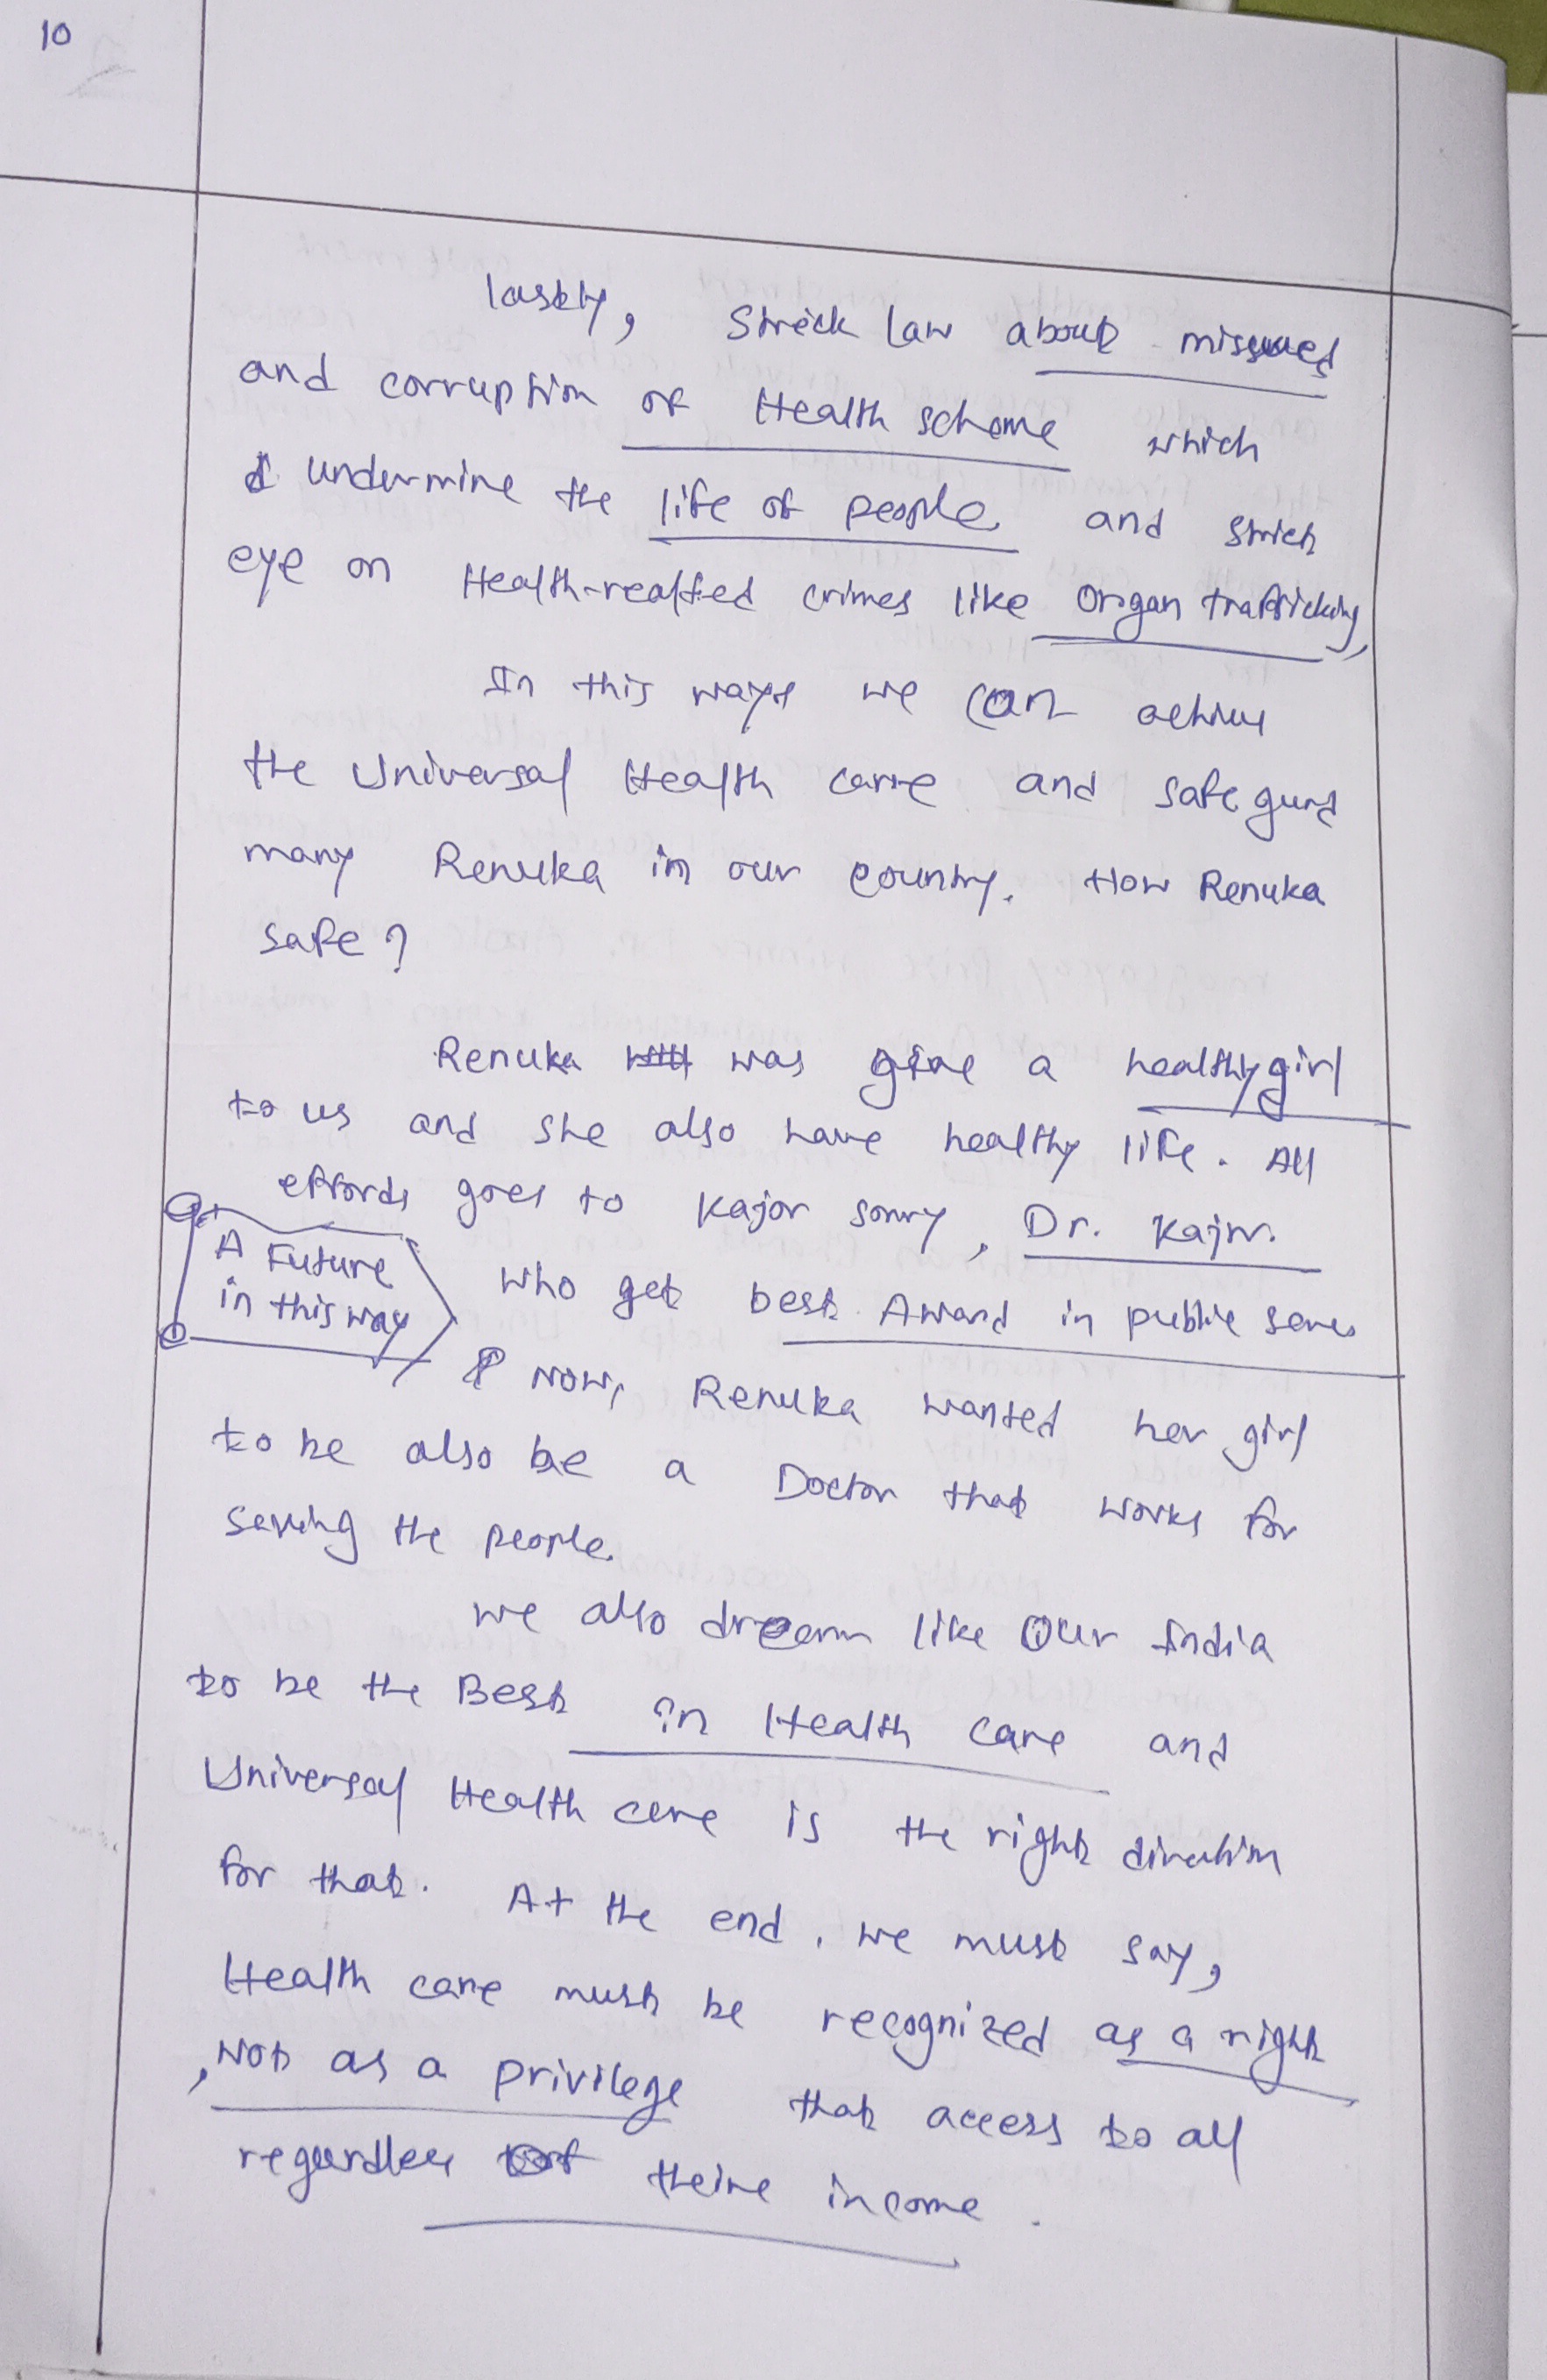 10
lastly, Strick law about missued
and corruption of Health scheme which
undermine the life of people and strict
eye on Health-realted crimes like Organ trafficking,
In this ways we can achive
the Universal Health care and safe gurd
many Renuka in our country. How Renuka
safe ?
Renuka was give a healthy girl
to us and she also have healthy life. All
effords goes to Kajor sorry, Dr. Kajor.
A Future
in this way
who get best Award in public serves
Now, Renuka wanted her girl
to be also be a Doctor that works for
serving the people.
we also dream like Our India
to be the Best in Health care and
Universal Health care is the right diraction
for that. At the end, we must say,
Health care must be recognized as a right
, Not as a privilege that access to all
regardless of theire income.